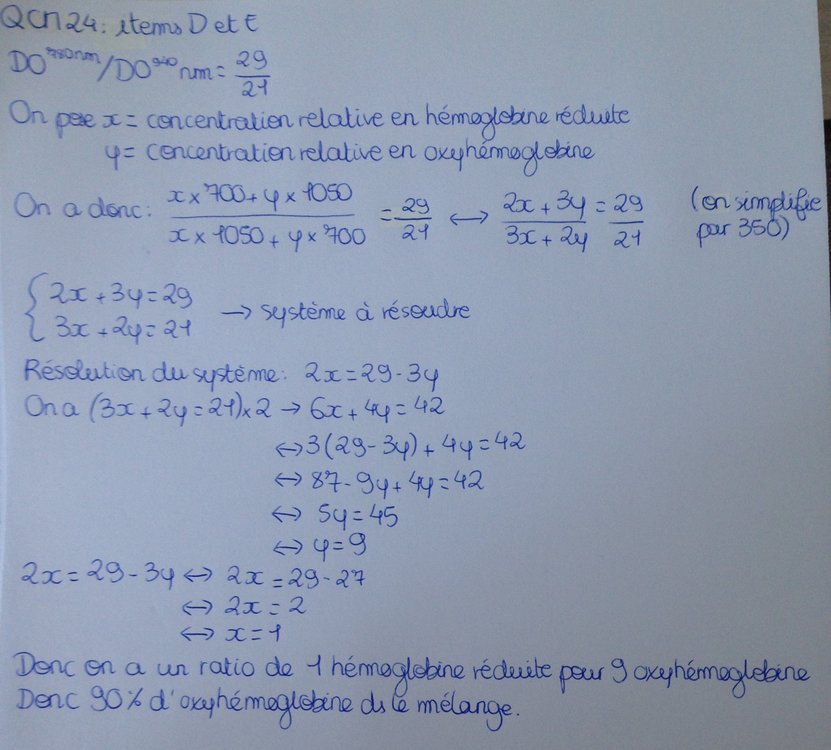 QCM 24: items D et E
DO⁷⁸⁰ⁿᵐ/DO⁹⁴⁰ nm = 29/21
On pose x = concentration relative en hémoglobine réduite
y = concentration relative en oxyhémoglobine
On a donc: (x × 700 + y × 1050)/(x × 1050 + y × 700) = 29/21 ↔ (2x + 3y)/(3x + 2y) = 29/21 (on simplifie par 350)
{ 2x + 3y = 29
{ 3x + 2y = 21 → système à résoudre
Résolution du système: 2x = 29 - 3y
On a (3x + 2y = 21) × 2 → 6x + 4y = 42
↔ 3(29 - 3y) + 4y = 42
↔ 87 - 9y + 4y = 42
↔ 5y = 45
↔ y = 9
2x = 29 - 3y ↔ 2x = 29 - 27
↔ 2x = 2
↔ x = 1
Donc on a un ratio de 1 hémoglobine réduite pour 9 oxyhémoglobine
Donc 90% d'oxyhémoglobine ds le mélange.